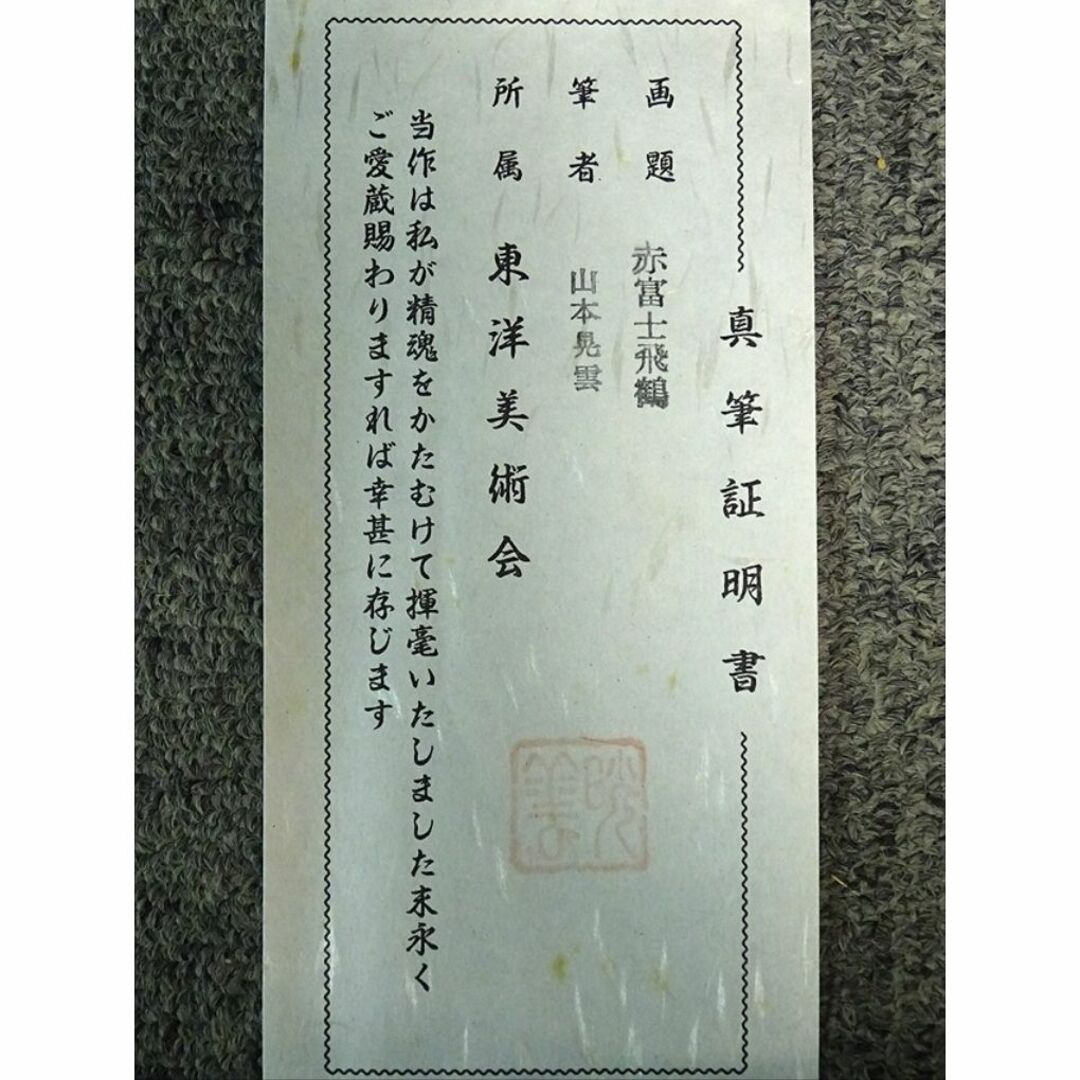 真筆証明書
画題 赤富士飛鶴
筆者 山本晃雲
所属 東洋美術会
当作は私が精魂をかたむけて揮毫いたしました末永く
ご愛蔵賜わりますれば幸甚に存じます